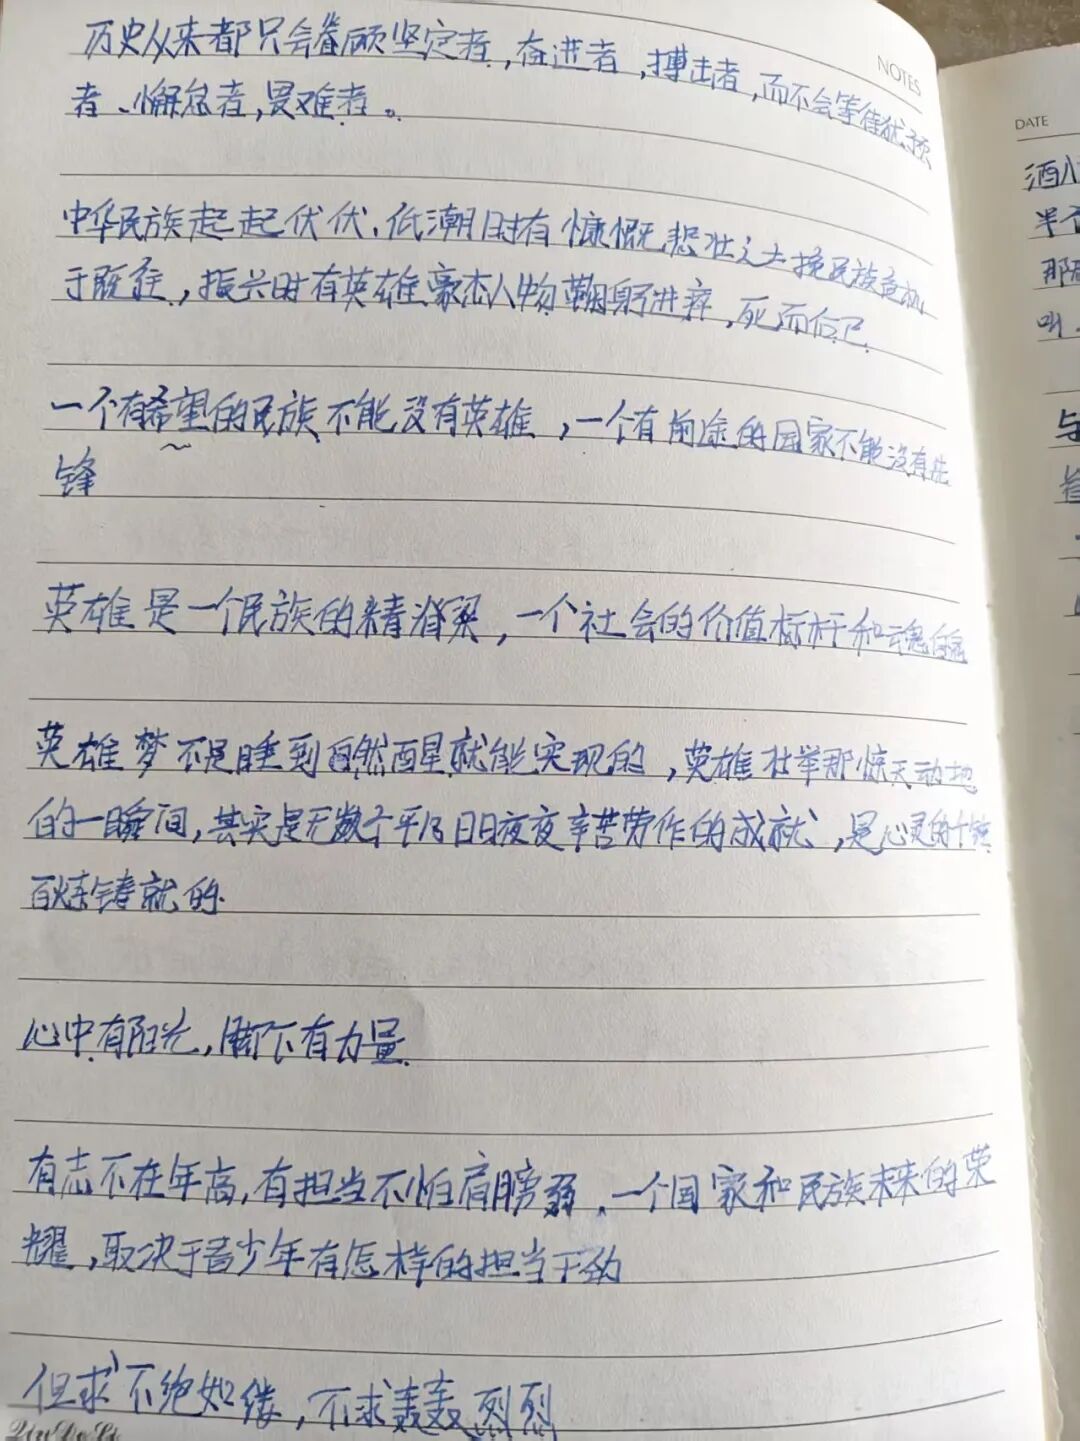 NOTES
历史从来都只会眷顾坚定者,奋进者,搏击者,而不会等待犹豫
者、懈怠者,畏难者。
中华民族起起伏伏.低潮时有慷慨悲壮之士挽民族危机
于既往,振兴时有英雄豪杰人物鞠躬进瘁,死而后已.
一个有希望的民族不能没有英雄,一个有前途的国家不能没有先
锋
英雄是一个民族的精脊梁,一个社会的价值标杆和魂
英雄梦不是睡到自然醒就能实现的,英雄壮举那惊天动地
的一瞬间,其实是无数个平凡日日夜夜辛苦劳作的成就,是心灵的千锤
百炼铸就的.
心中有阳光,脚下有力量.
有志不在年高,有担当不怕肩膀弱.一个国家和民族未来的荣
耀,取决于青少年有怎样的担当干劲
但求不绝如缕,不求轰轰烈烈
DATE
酒
半
那
叫.
与